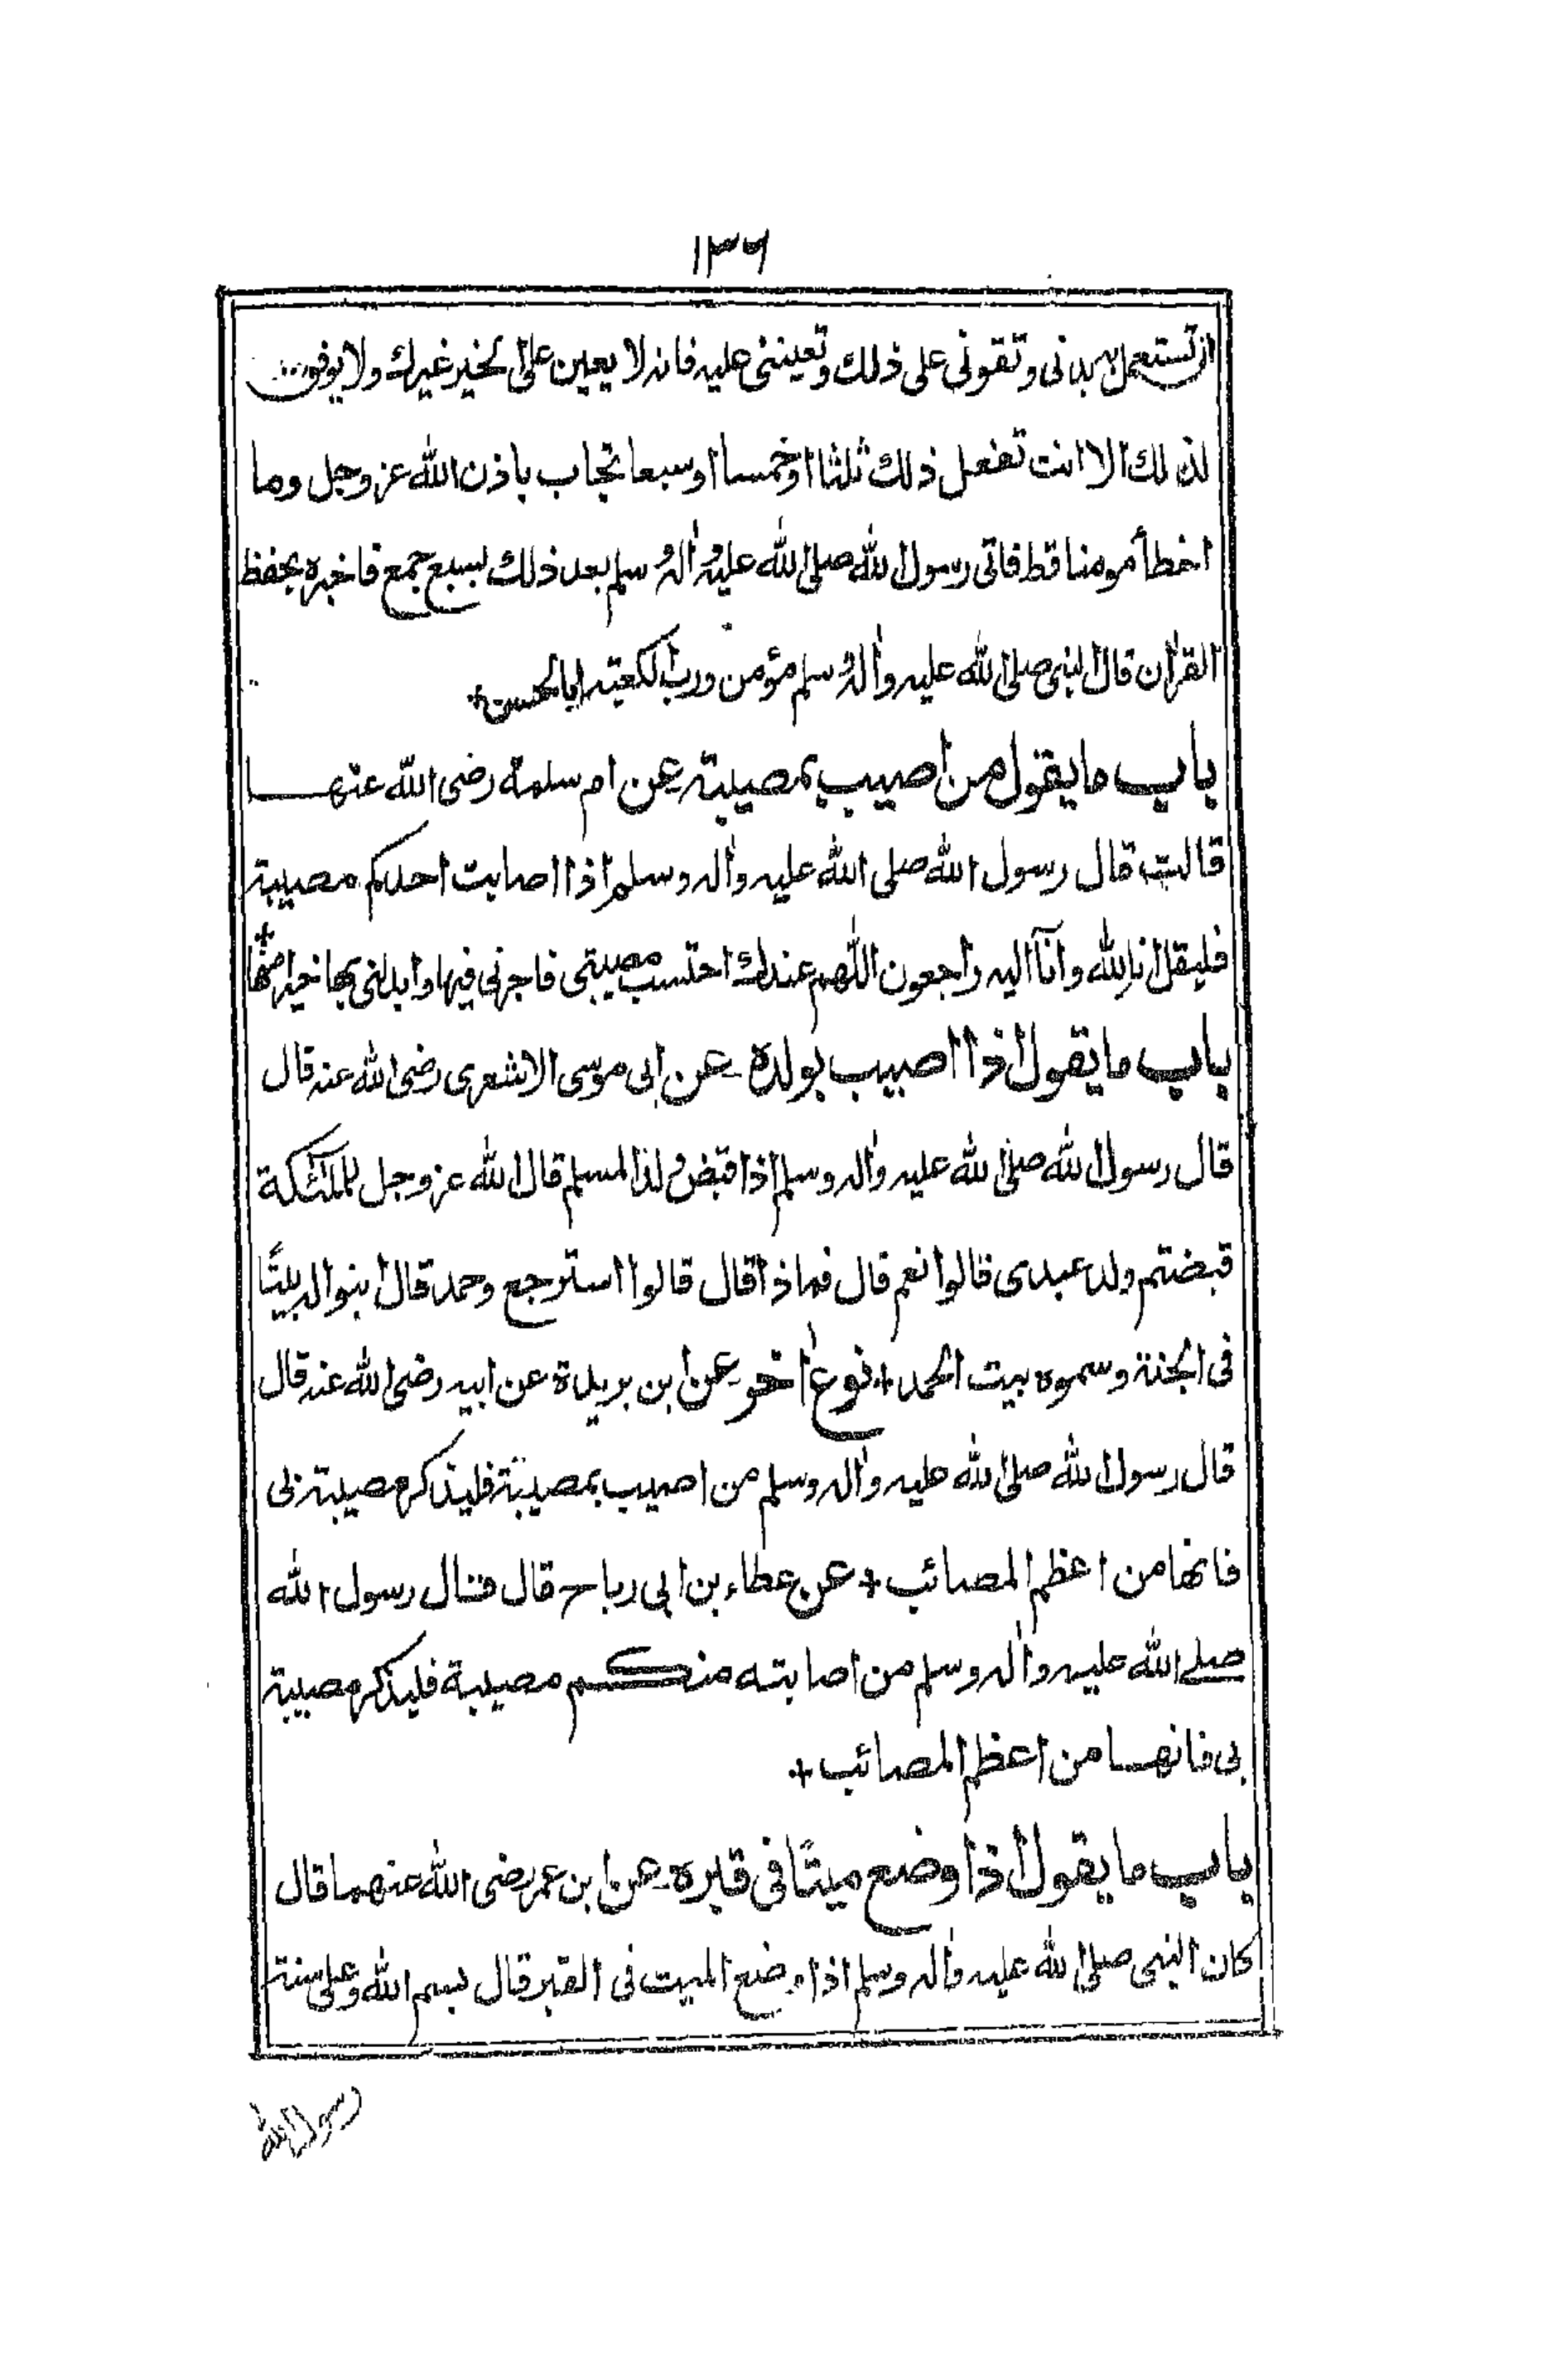 ١٣٦
ان تستعمل به بدنى وتقونى على ذلك وتعيننى عليه فانه لا يعين على الخير غيرك ولا يوفق
لذلك الا انت تفعل ذلك ثلثا اوخمسا اوسبعا تجاب باذن الله عزوجل وما
اخطأ مومنا قط فاتى رسول الله صلى الله عليه واٰله وسلم بعد ذلك لسبع جمع فاخبره بحفظ
القراٰن قال النبى صلى الله عليه واٰله وسلم مؤمن ورب الكعبة ابا الحسن +
باب ما يقول من اصيب بمصيبة عن ام سلمة رضى الله عنها
قالت قال رسول الله صلى الله عليه واٰله وسلم اذا اصابت احدكم مصيبة
فليقل انا لله وانآ اليه راجعون اللّٰهم عندك احتسب مصيبتى فاجرنى فيها وابدلنى بها خيرا منها +
باب ما يقول اذا اصيب بولده عن ابى موسى الاشعرى رضى الله عنه قال
قال رسول الله صلى الله عليه واٰله وسلم اذا قبض ولد المسلم قال الله عزوجل للملٰئكة
قبضتم ولد عبدى قالوا نعم قال فماذا قال قالوا استرجع وحمد قال ابنوا له بيتًا
فى الجنة وسموه بيت الحمد + نوع اٰخر عن ابن بريدة عن ابيه رضى الله عنه قال
قال رسول الله صلى الله عليه واٰله وسلم من اصيب بمصيبة فليذكر مصيبته بى
فانها من اعظم المصائب + عن عطاء بن ابى رباح قال قال رسول الله
صلے الله عليه واٰله وسلم من اصابته منكم مصيبة فليذكر مصيبة
بى فانها من اعظم المصائب +
باب ما يقول اذا وضع ميتًا فى قبره عن ابن عمر رضى الله عنهما قال
كان النبى صلى الله عليه واٰله وسلم اذا وضع الميت فى القبر قال بسم الله وعلى سنة
رسول الله